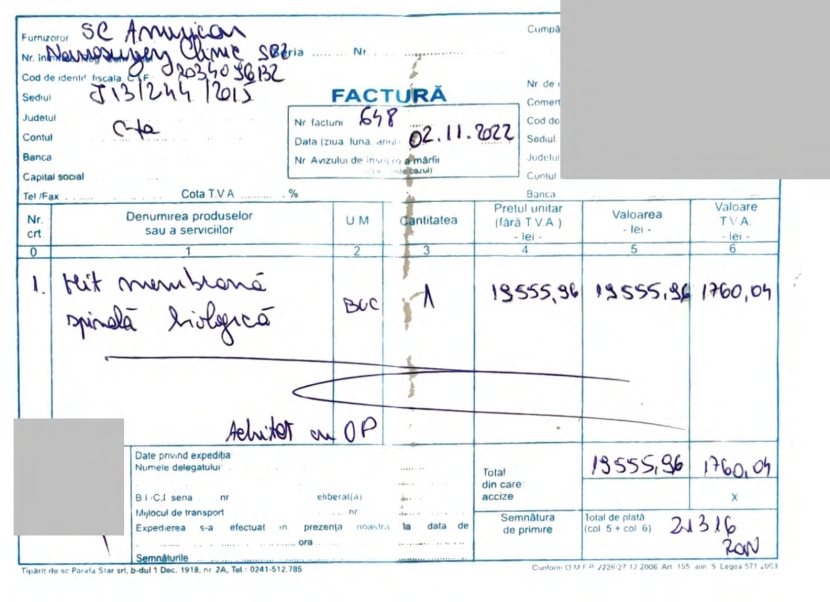 Furnizor SC American Cumpă
Nr. în Neurosurgery Clinic SRL Seria Nr.
Cod de identif fiscala C.I.F. Nr de
Sediul J13/244/2015 FACTURĂ Comert
Judetul Nr facturii 648 Cod de
Contul C-ta Data (ziua luna, anul 02.11.2022 Sediul
Banca Nr Avizului de însoțire a mărfii Judetul
Capital social Contul
Tel /Fax Cota T.V.A. % Banca
Nr. crt. Denumirea produselor sau a serviciilor U M Cantitatea Pretul unitar (fără T.V.A.) - lei - Valoarea - lei - Valoare T.V.A. - lei -
0 1 2 3 4 5 6
1. Kit membrană BUC 1 19555,96 19555,96 1760,04
spinală biologică
Achitat cu OP
Date privind expediția
Numele delegatului
B.I./C.I. seria nr eliberat(a)
Mijlocul de transport nr
Expedierea s-a efectuat in prezența noastra la data de
ora
Semnăturile
Total din care: accize 19555,96 1760,04
X
Semnătura de primire Total de plată (col 5 + col 6) 21316
RON
Tipărit de sc Parafa Star srl, b-dul 1 Dec. 1918, nr 2A, Tel.: 0241-512.786